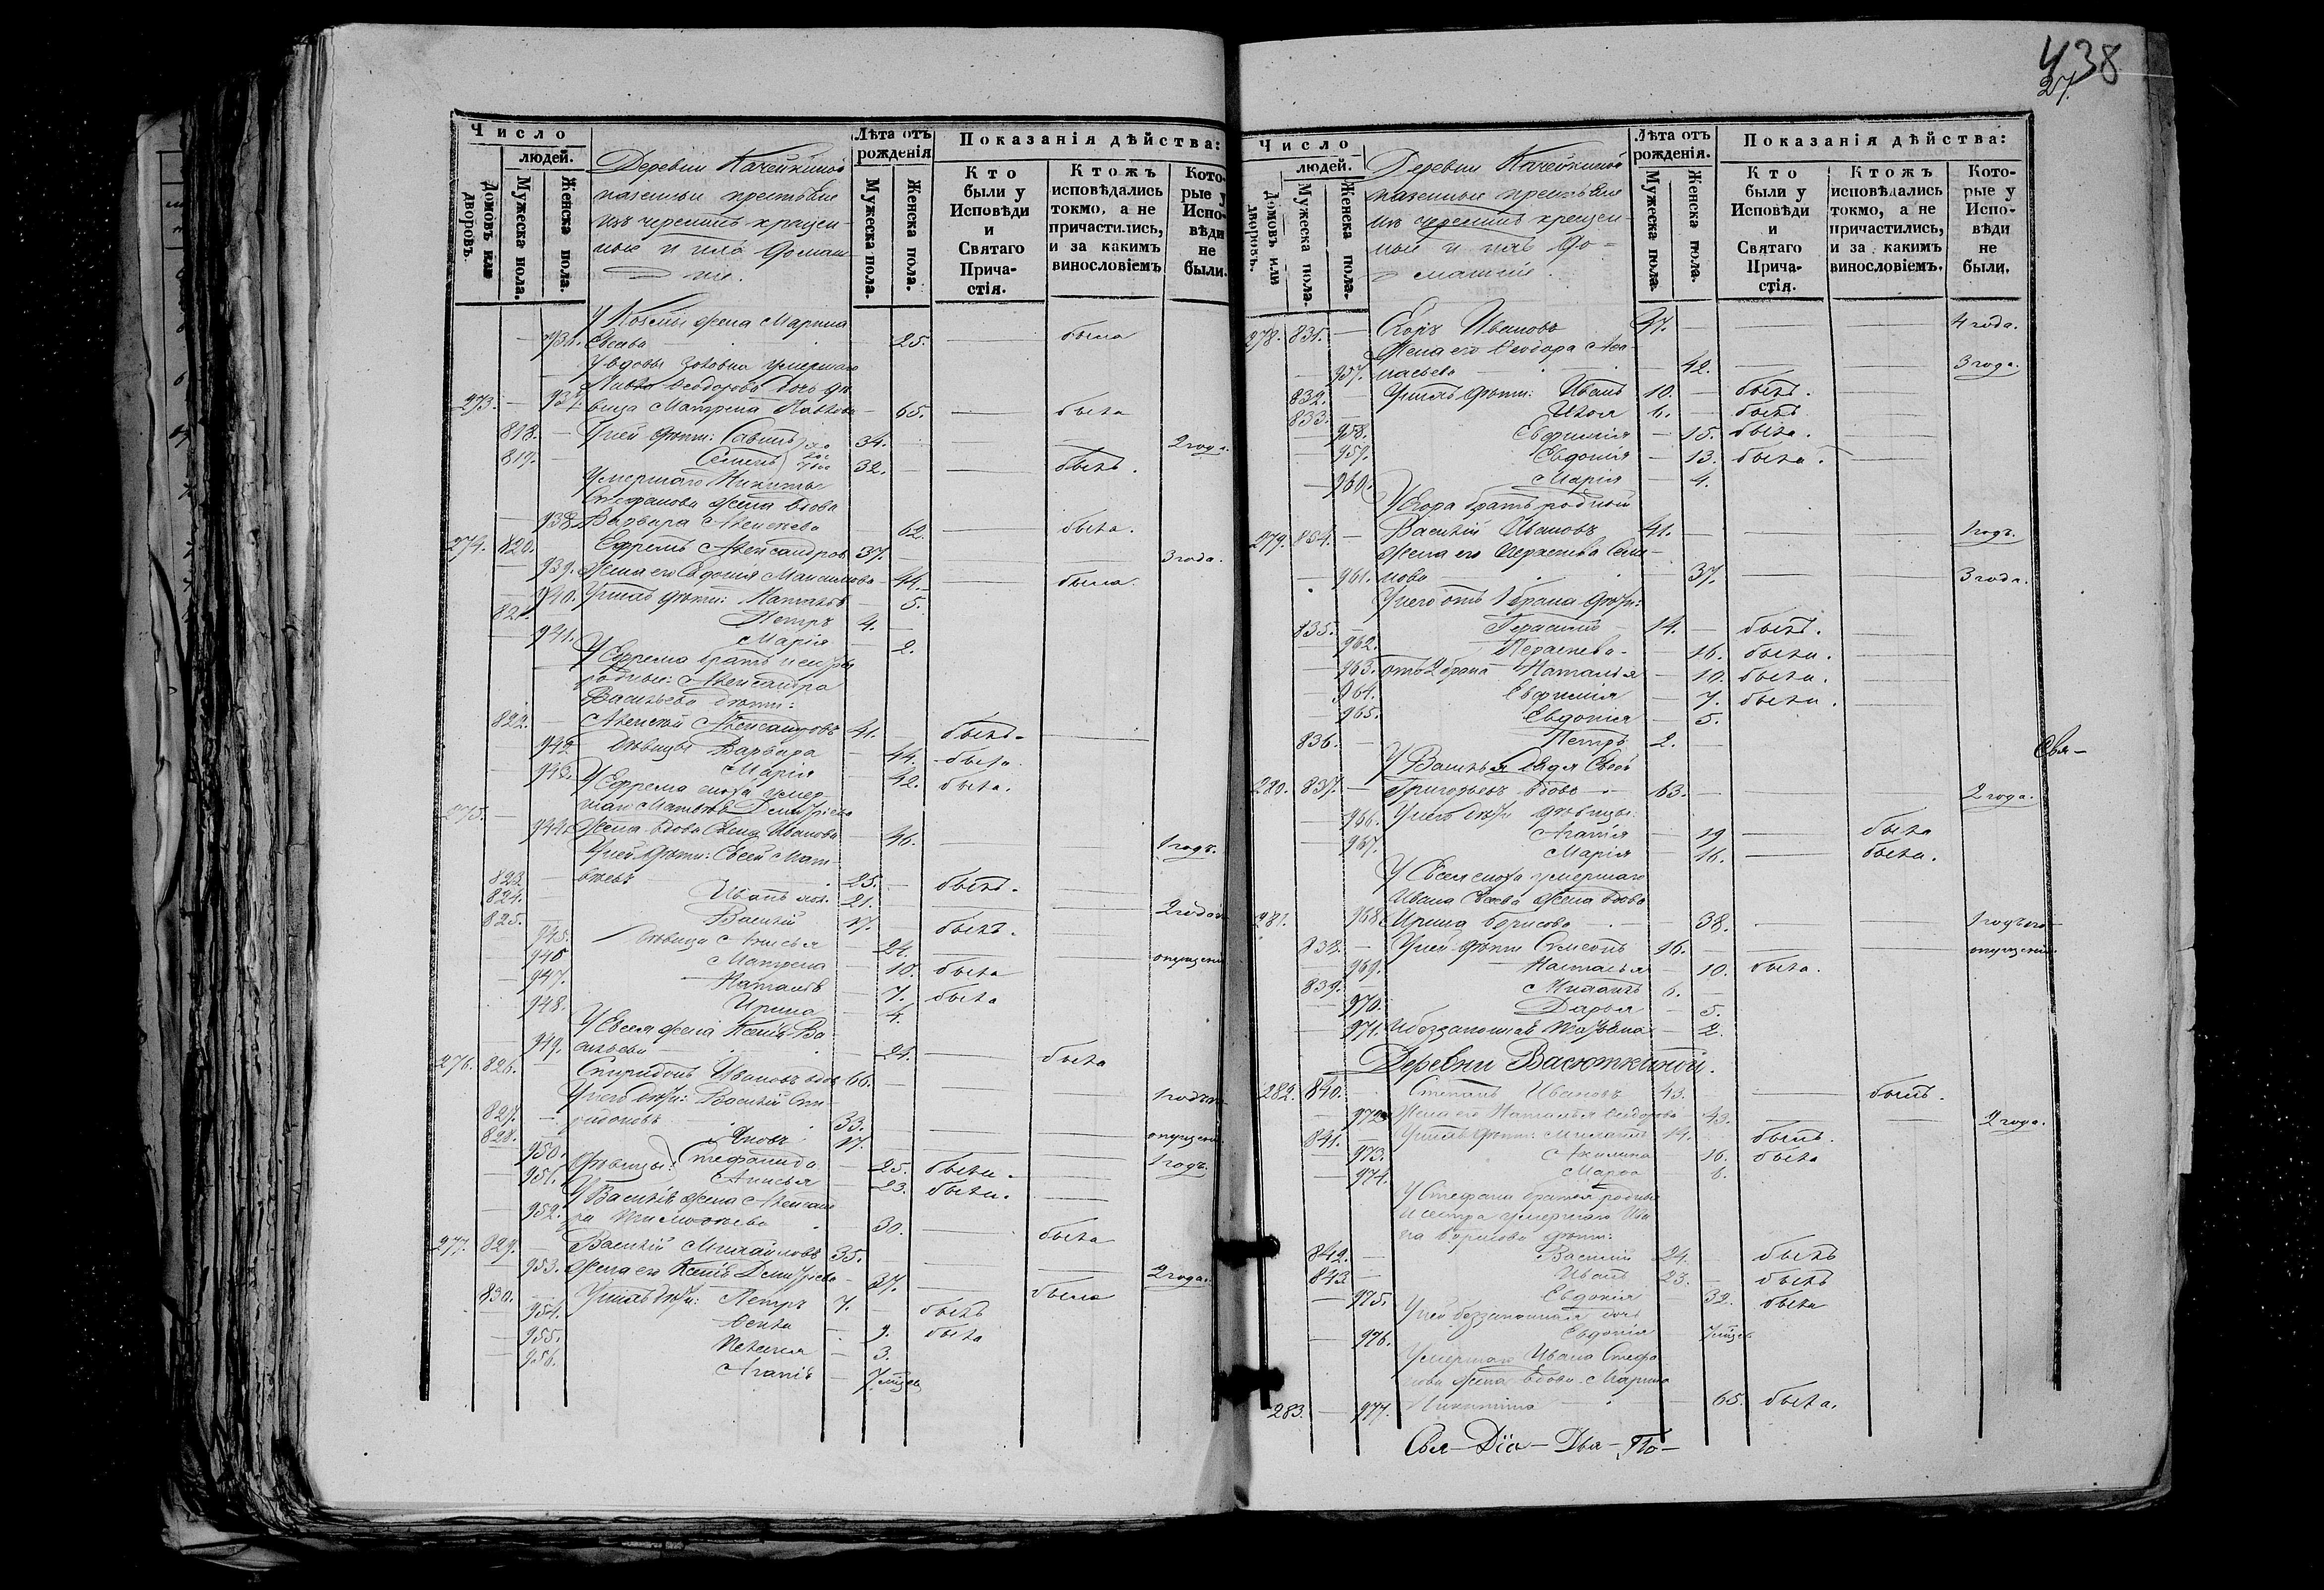 438
27.
Число
людей.
Домовъ или дворовъ.
Мужеска пола.
Женска пола.
Деревни Качейкиной
казенные крестьяне
изъ черемисъ крещен-
ные и ихъ домаш-
ніе.
Лѣта отъ рожденія
Мужеска пола.
Женска пола.
Показанія дѣйства:
Кто были у Исповѣди и Святаго Прича- стія.
Ктожъ исповѣдались токмо, а не причастились, и за какимъ винословіемъ
Кото- рые у Испо- вѣди не были.
У Козмы жена Марина
936. Евсева 25. была
У вдовы умершаго
Ѳеодорова дочь дѣ-
273. 937. вица Матрена Павлова 65. была
818. У ней дѣти: Савинъ 34. 2 года.
819. Семенъ 32. былъ.
Умершаго Никиты
Стефанова жена вдова
938. Варвара Алексеева 62. была.
274. 820. Ефремъ Александровъ 37. 3 года.
939. Жена его Евдокія Максимова 44. была.
940. У нихъ дѣти: Наталья 5.
821. Петръ 4.
941. Марія 2.
У Ефрема братъ и сестры
родные: Александра
Васильева дѣти:
822. Алексѣй Александровъ 41. былъ.
942 Дѣвицы Варвара 44. была
943. Марія 42. была.
У Ефрема сноха умер-
шаго Матвѣя Дмитріева
275. 944. Жена вдова Елена Иванова 46. 1 годъ.
У ней дѣти: Евсей Мат-
823 вѣевъ 25. былъ.
824. Иванъ 21. 2 года
825. Василій 17. былъ.
945. Дѣвица Анисья 24. опущен.
946 Матрена 10. была
947. Наталья 7. была
948. Ирина 4.
У Евсея жена Ксенія Ва-
949. сильева 24. была
276. 826. Спиридонъ Ивановъ вдов 66. 1 годъ
У него дѣти: Василій Спи-
827. ридоновъ 33. опущен.
828. Яковъ 17. 1 годъ.
950. Дѣвицы: Стефанида 25. была.
951. Анисья 23. была.
У Василія жена Александ-
952. ра Тимофѣева 30. была
277. 829. Василій Михайловъ 35. 2 года.
953. Жена его Ксенія Дмитріева 37. была
830. У нихъ дѣти: Петръ 7. былъ
954. Ѳекла 9. была
955. Пелагія 3.
956. Агапія 7 мѣсяц
Число
людей.
Домовъ или дворовъ.
Мужеска пола.
Женска пола.
Деревни Качейкиной
казенные крестьяне
изъ черемисъ крещен-
ные и ихъ до-
машніе.
Лѣта отъ рожденія.
Мужеска пола.
Женска пола.
Показанія дѣйства:
Кто были у Исповѣди и Святаго Прича- стія.
Ктожъ исповѣдались токмо, а не причастились, и за какимъ винословіемъ.
Кото- рые у Испо- вѣди не были.
278. 831. Егоръ Ивановъ 47. 4 года.
Жена его Ѳеодора Аѳа-
957. насьева 42. 3 года.
832. У нихъ дѣти: Иванъ 10. былъ.
833. Илья 6. былъ.
958. Евфимія 15. была.
959. Евдокія 13. была.
960. Марія 4.
У Егора братъ родной
279. 834. Василій Ивановъ 41. 1 годъ.
Жена его Параскева Семе-
961. нова 37. 3 года.
У него отъ 1 брака дѣти:
835. Герасимъ 14. былъ.
962. Параскева 16. была.
963. отъ 2 брака Наталья 10. была.
964. Евфимія 7. была.
965. Евдокія 5.
836. Петръ 2.
Свя-
У Василья дядя Евсей
280. 837. Григорьевъ вдовъ 63. 2 года.
966. У него дѣти дѣвицы:
Агапія 19 была
967. Марія 16. была.
У Евсея сноха умершаго
Ивана Евсева жена вдова
281. 968. Ирина Борисова 38. 1 годъ по
838. У ней дѣти Симеонъ 16. опущенію.
969. Наталья 10. была.
839. Михаилъ 6.
970. Дарья 5.
971. И беззаконная Татьяна 2.
Деревни Васюткиной.
282. 840. Степанъ Ивановъ 43. былъ.
972 Жена его Наталья Ѳедорова 43. 2 года.
841. У нихъ дѣти: Михаилъ 14. былъ.
973. Акилина 16. была
974. Марѳа 6.
У Стефана братья родные
и сестра умершаго Ива-
на Борисова дѣти:
842. Василій 24. былъ
843. Иванъ 23. былъ
975. Евдокія 32. была
У ней беззаконная дочь
976. Евдокія 7 мѣсяц
Умершаго Ивана Стефа-
нова жена вдова Марина
283. 977. Никитина 65. была.
Свя-Діа-Дья-По-